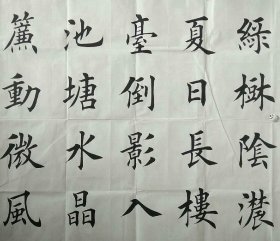 綠樹陰濃
夏日長樓
臺倒影入
池塘水晶
簾動微風